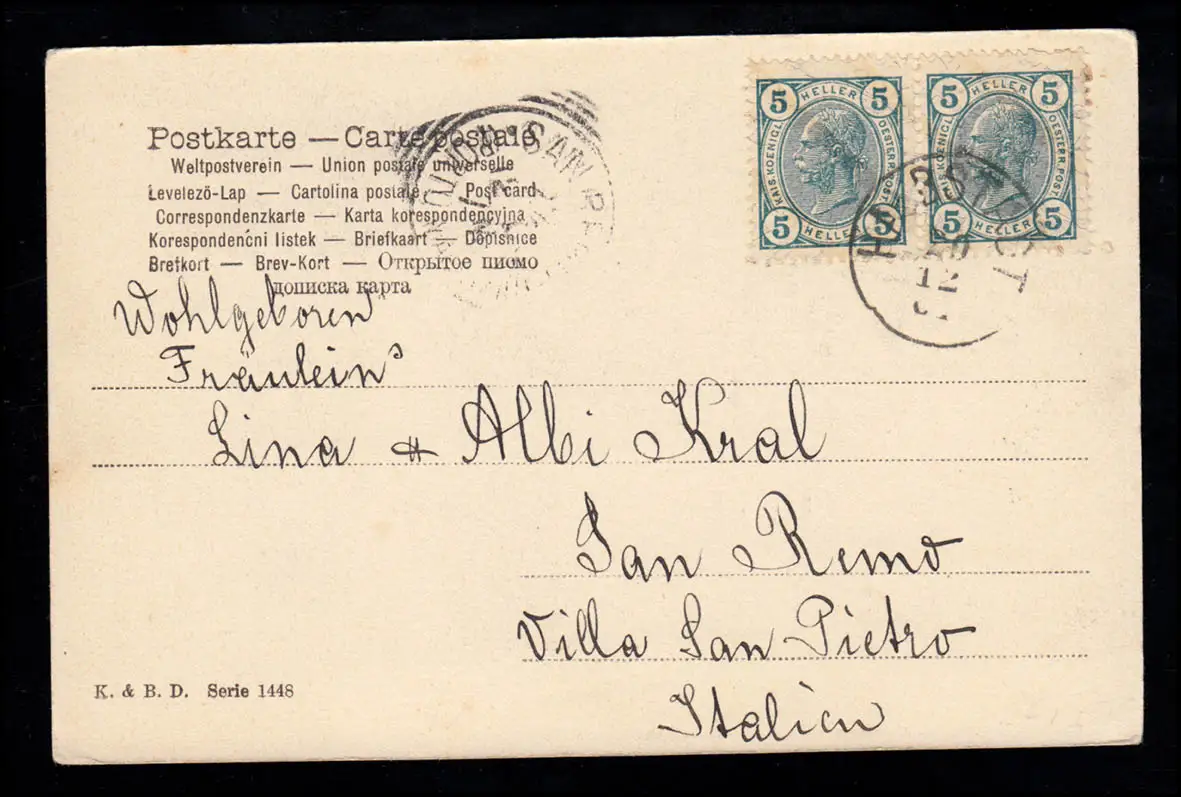 Postkarte — Carte postale
Weltpostverein — Union postale universelle
Levelező-Lap — Cartolina postale — Post card
Correspondenzkarte — Karta korespondencyjna
Korespondenčni listek — Briefkaart — Dopisnice
Brefkort — Brev-Kort — Открытое письмо
дописка карта
5 HELLER 5
KAIS. KOENIGL. OESTERR. POST.
5 HELLER 5
5 HELLER 5
KAIS. KOENIGL. OESTERR. POST.
5 HELLER 5
12
Wohlgeboren
Fräulein's
Lina & Albi Kral
San Remo
Villa San Pietro
Italien
K. & B. D. Serie 1448